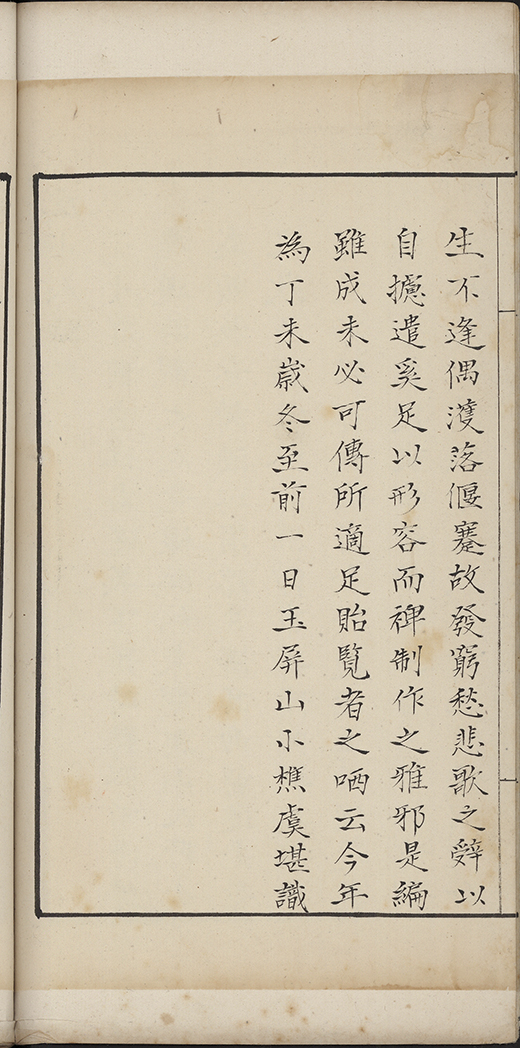 生不逢偶濩落偃蹇故發窮愁悲歌之辝以
自攄遣奚足以形容而裨制作之雅邪是編
雖成未必可傳所適足貽覽者之哂云今年
為丁未歲冬至前一日玉屏山小樵虞堪識